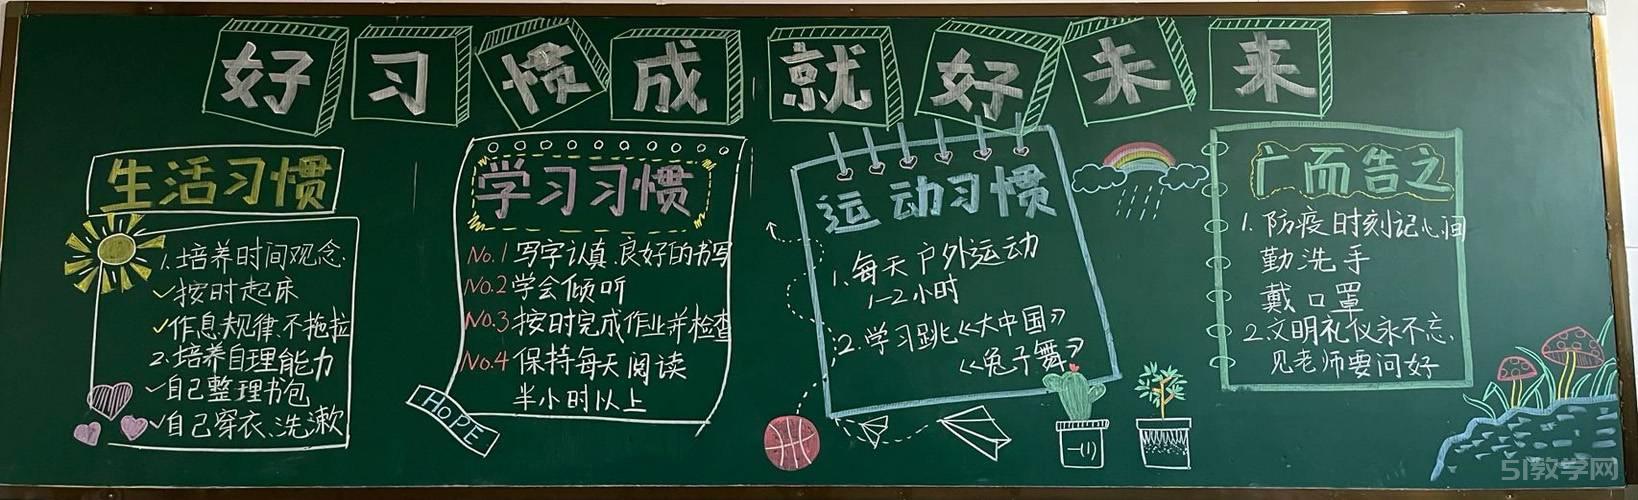 好习惯成就好未来
生活习惯
1.培养时间观念.
✓按时起床
✓作息规律、不拖拉
2.培养自理能力
✓自己整理书包
✓自己穿衣、洗漱
学习习惯
No.1写字认真、良好的书写
No.2学会倾听
No.3按时完成作业并检查
No.4保持每天阅读
半小时以上
HOPE
运动习惯
1、每天户外运动
1-2小时
2.学习跳《大中国》
《兔子舞》
一(1)
广而告之
1.防疫时刻记心间
勤洗手
戴口罩
2.文明礼仪永不忘,
见老师要问好
51教学网